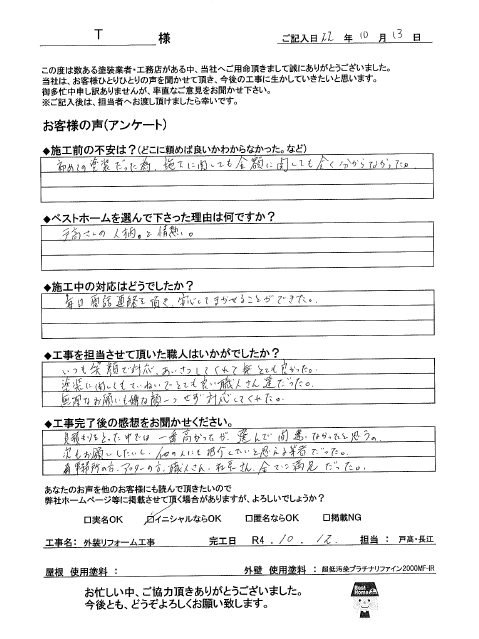 T 様
ご記入日 22 年 10 月 13 日
この度は数ある塗装業者・工務店がある中、当社へご用命頂きまして誠にありがとうございました。
当社は、お客様ひとりひとりの声を聞かせて頂き、今後の工事に生かしていきたいと思います。
御多忙中申し訳ありませんが、率直なご意見をお聞かせ下さい。
※ご記入後は、担当者へお渡し頂けましたら幸いです。
お客様の声(アンケート)
◆施工前の不安は?(どこに頼めば良いかわからなかった。など)
初めての塗装だった為、施工に関しても金額に関しても全く分からなかった。
◆ベストホームを選んで下さった理由は何ですか?
戸高さんの人柄。と情熱。
◆施工中の対応はどうでしたか?
毎日電話連絡を頂き、安心してまかせることができた。
◆工事を担当させて頂いた職人はいかがでしたか?
いつも笑顔で対応、あいさつしてくれて皆とても良かった。
塗装に関してもていねいでとても良い職人さん達だった。
無理なお願いも嫌な顔一つせず対応してくれた。
◆工事完了後の感想をお聞かせください。
見積もりをとった中では一番高かったが、選んで間違いなかったと思う。
次もお願いしたいし、他の人にも紹介したいと思える業者だった。
事務所の方、アフターの方、職人さん、社長さん、全てに満足だった。
あなたのお声を他のお客様にも読んで頂きたいので
弊社ホームページ等に掲載させて頂く場合がありますが、よろしいでしょうか?
□実名OK ☑イニシャルならOK □匿名ならOK □掲載NG
工事名: 外装リフォーム工事 完工日 R4.10.12 担当: 戸高・長江
屋根 使用塗料: 外壁 使用塗料: 超低汚染プラチナリファイン2000MF-IR
お忙しい中、ご協力頂きありがとうございました。
今後とも、どうぞよろしくお願い致します。
Best Home